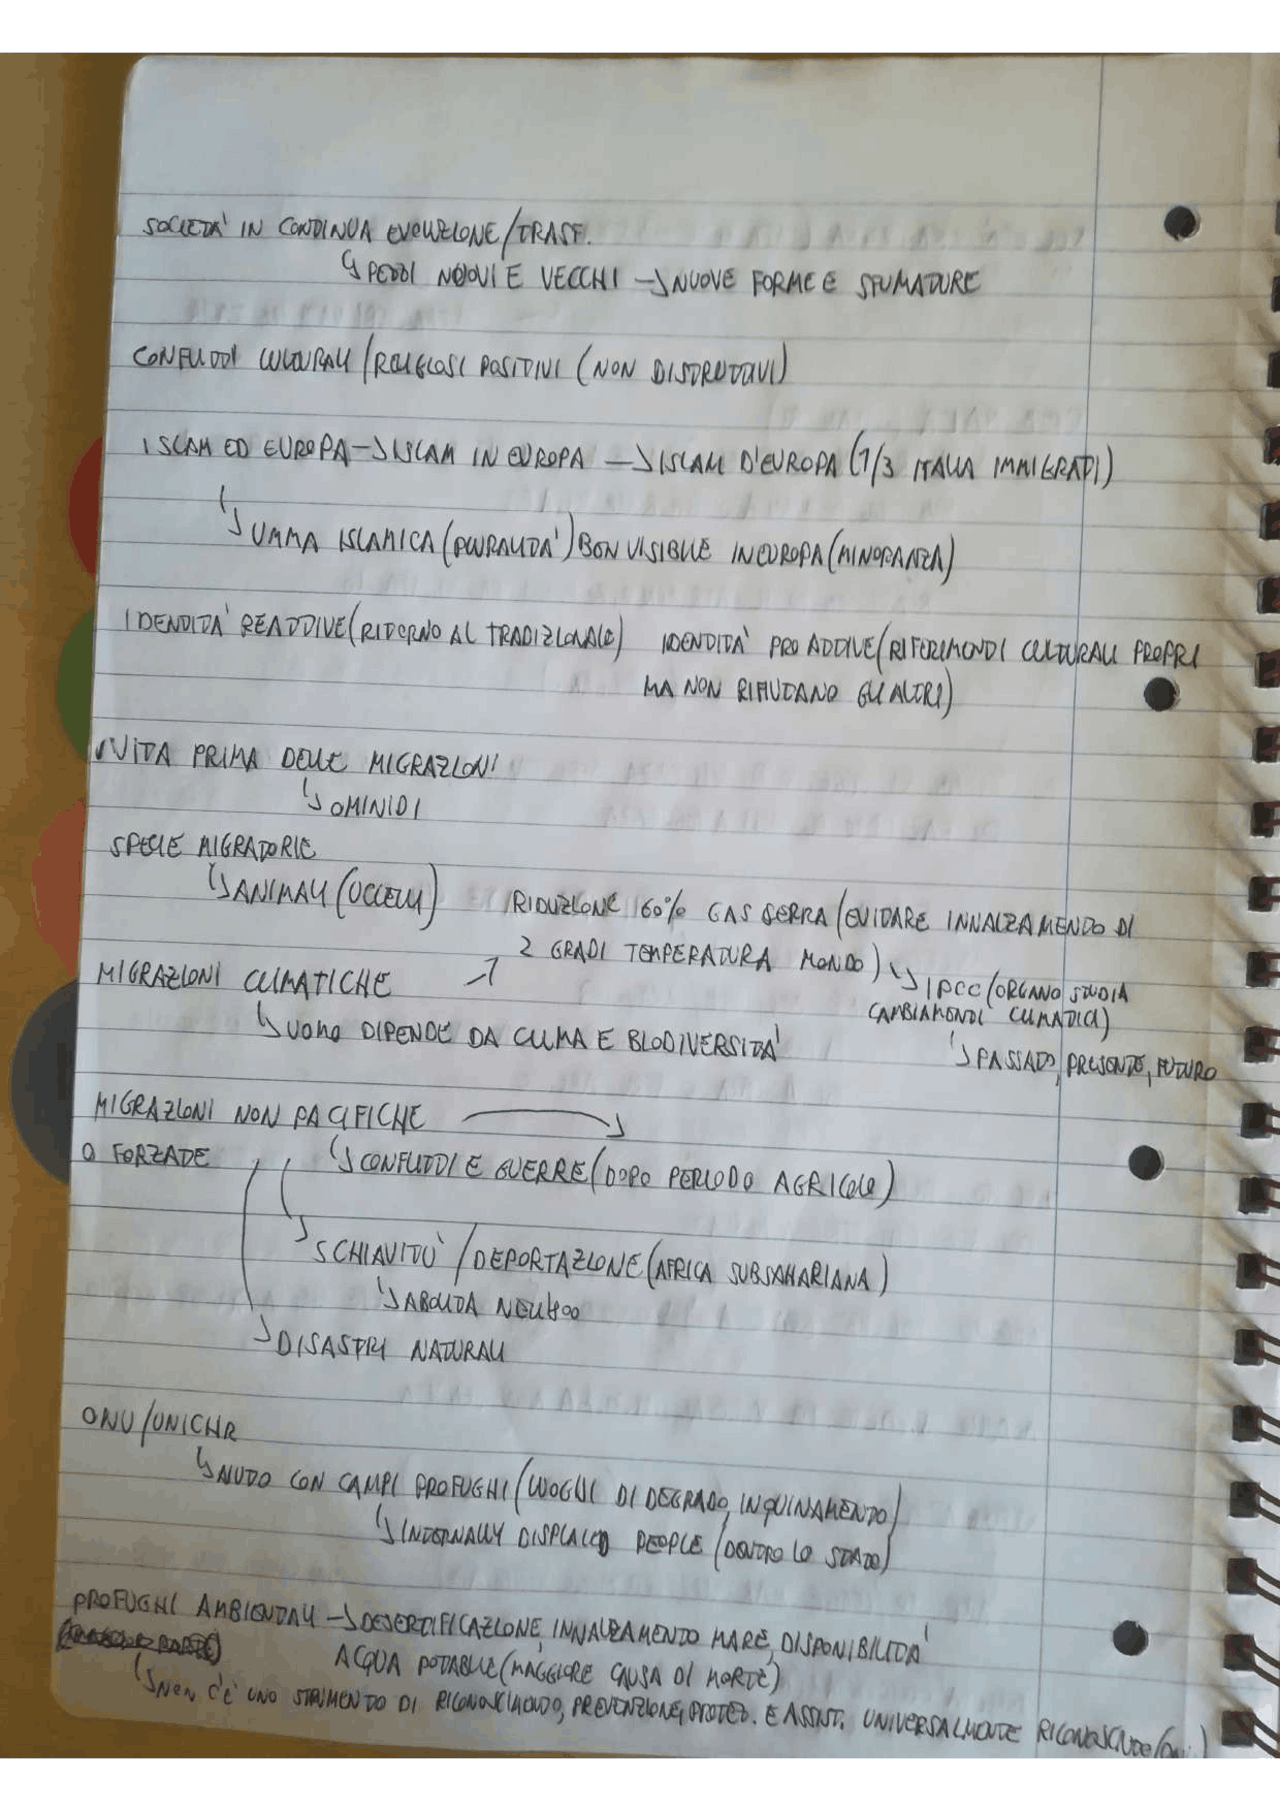 SOCIETA' IN CONTINUA EVOLUZIONE/TRASF.
↳ PEZZI NUOVI E VECCHI → NUOVE FORME E SFUMATURE
CONFLITTI CULTURALI/RELIGIOSI POSITIVI (NON DISTRUTTIVI)
ISLAM ED EUROPA → ISLAM IN EUROPA → ISLAM D'EUROPA (1/3 ITALIA IMMIGRATI)
↳ UMMA ISLAMICA (PLURALITA') BEN VISIBILE IN EUROPA (MINORANZA)
IDENTITA' REATTIVE (RITORNO AL TRADIZIONALE) IDENTITA' PROATTIVE (RIFERIMENTI CULTURALI PROPRI
MA NON RIFIUTANO GLI ALTRI)
VITA PRIMA DELLE MIGRAZIONI
↳ OMINIDI
SPECIE MIGRATORIE
↳ ANIMALI (UCCELLI) RIDUZIONE 60% GAS SERRA (EVITARE INNALZAMENTO DI
2 GRADI TEMPERATURA MONDO) ↳ IPCC (ORGANO STUDIA
MIGRAZIONI CLIMATICHE ↗ CAMBIAMENTI CLIMATICI)
↳ UOMO DIPENDE DA CLIMA E BIODIVERSITA' ↳ PASSATO, PRESENTE, FUTURO
MIGRAZIONI NON PACIFICHE
O FORZATE ↳ CONFLITTI E GUERRE (DOPO PERIODO AGRICOLO)
↳ SCHIAVITU'/DEPORTAZIONE (AFRICA SUBSAHARIANA)
↳ ABOLITA NELL'800
↳ DISASTRI NATURALI
ONU/UNICHR
↳ AIUTO CON CAMPI PROFUGHI (LUOGHI DI DEGRADO, INQUINAMENTO)
↳ INTERNALLY DISPLACED PEOPLE (DENTRO LO STATO)
PROFUGHI AMBIENTALI → DESERTIFICAZIONE, INNALZAMENTO MARE, DISPONIBILITA'
ACQUA POTABILE (MAGGIORE CAUSA DI MORTE)
↳ NON C'E' UNO STRUMENTO DI RICONOSCIMENTO, PREVENZIONE, PROTEZ. E ASSIST. UNIVERSALMENTE RICONOSCIUTO